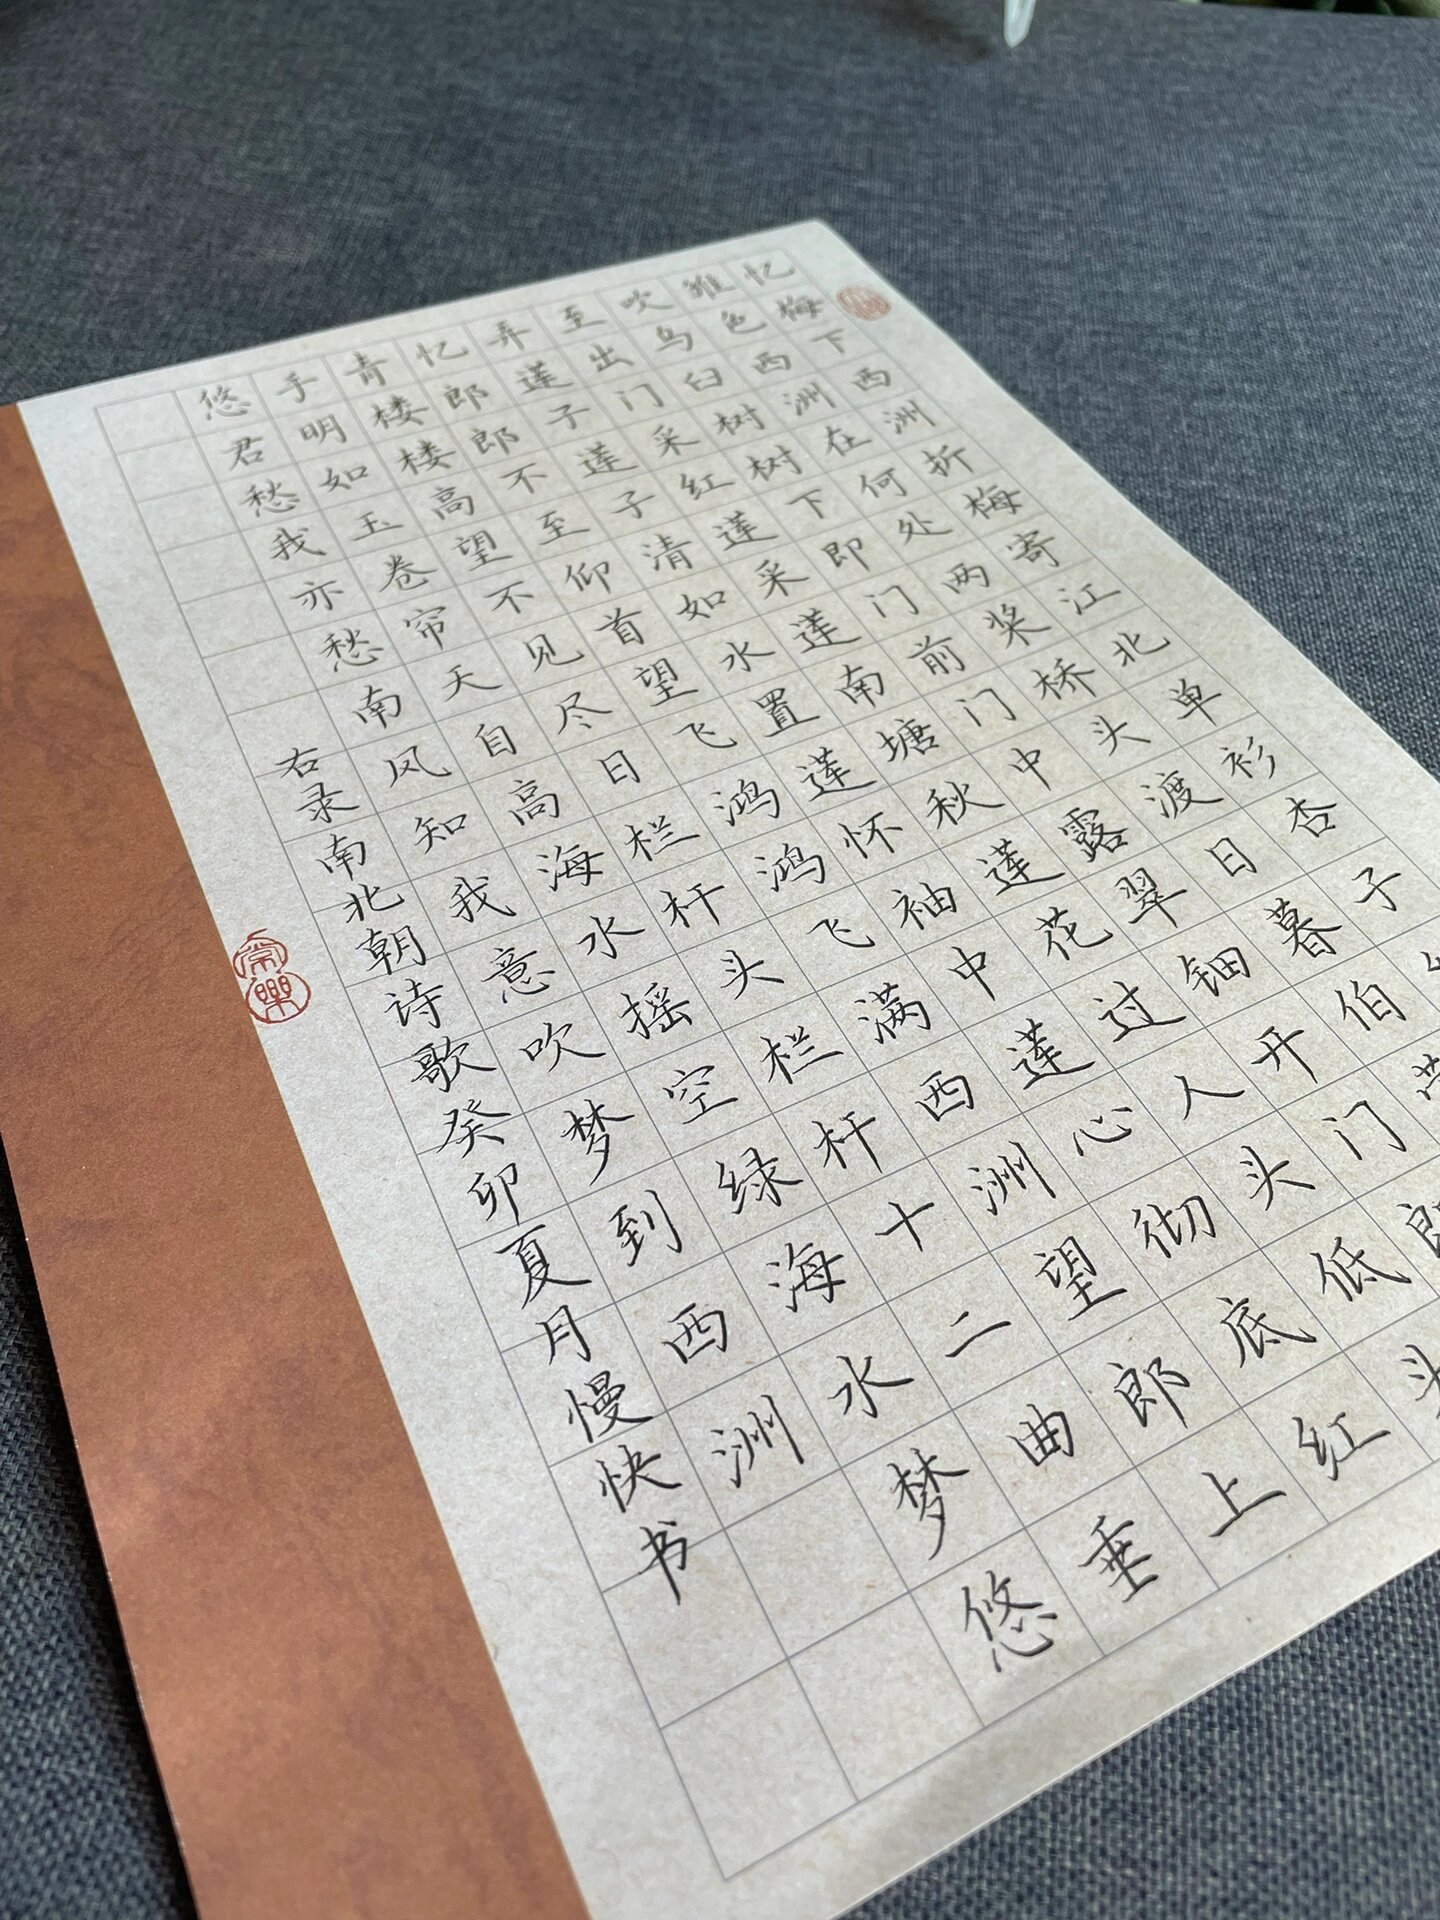 忆梅下西洲折梅寄江北单衫杏子
雏色西洲在何处两桨桥头渡日暮伯
吹乌臼树树下即门前门中露翠钿开门郎
至出门采红莲采莲南塘秋莲花过人头低头
弄莲子莲子清如水置莲怀袖中莲心彻底红
忆郎郎不至仰首望飞鸿鸿飞满西洲望郎上
青楼楼高望不见尽日栏杆头栏杆十二曲垂
手明如玉卷帘天自高海水摇空绿海水梦悠
悠君愁我亦愁南风知我意吹梦到西洲
右录南北朝诗歌癸卯夏月慢快书
常樂